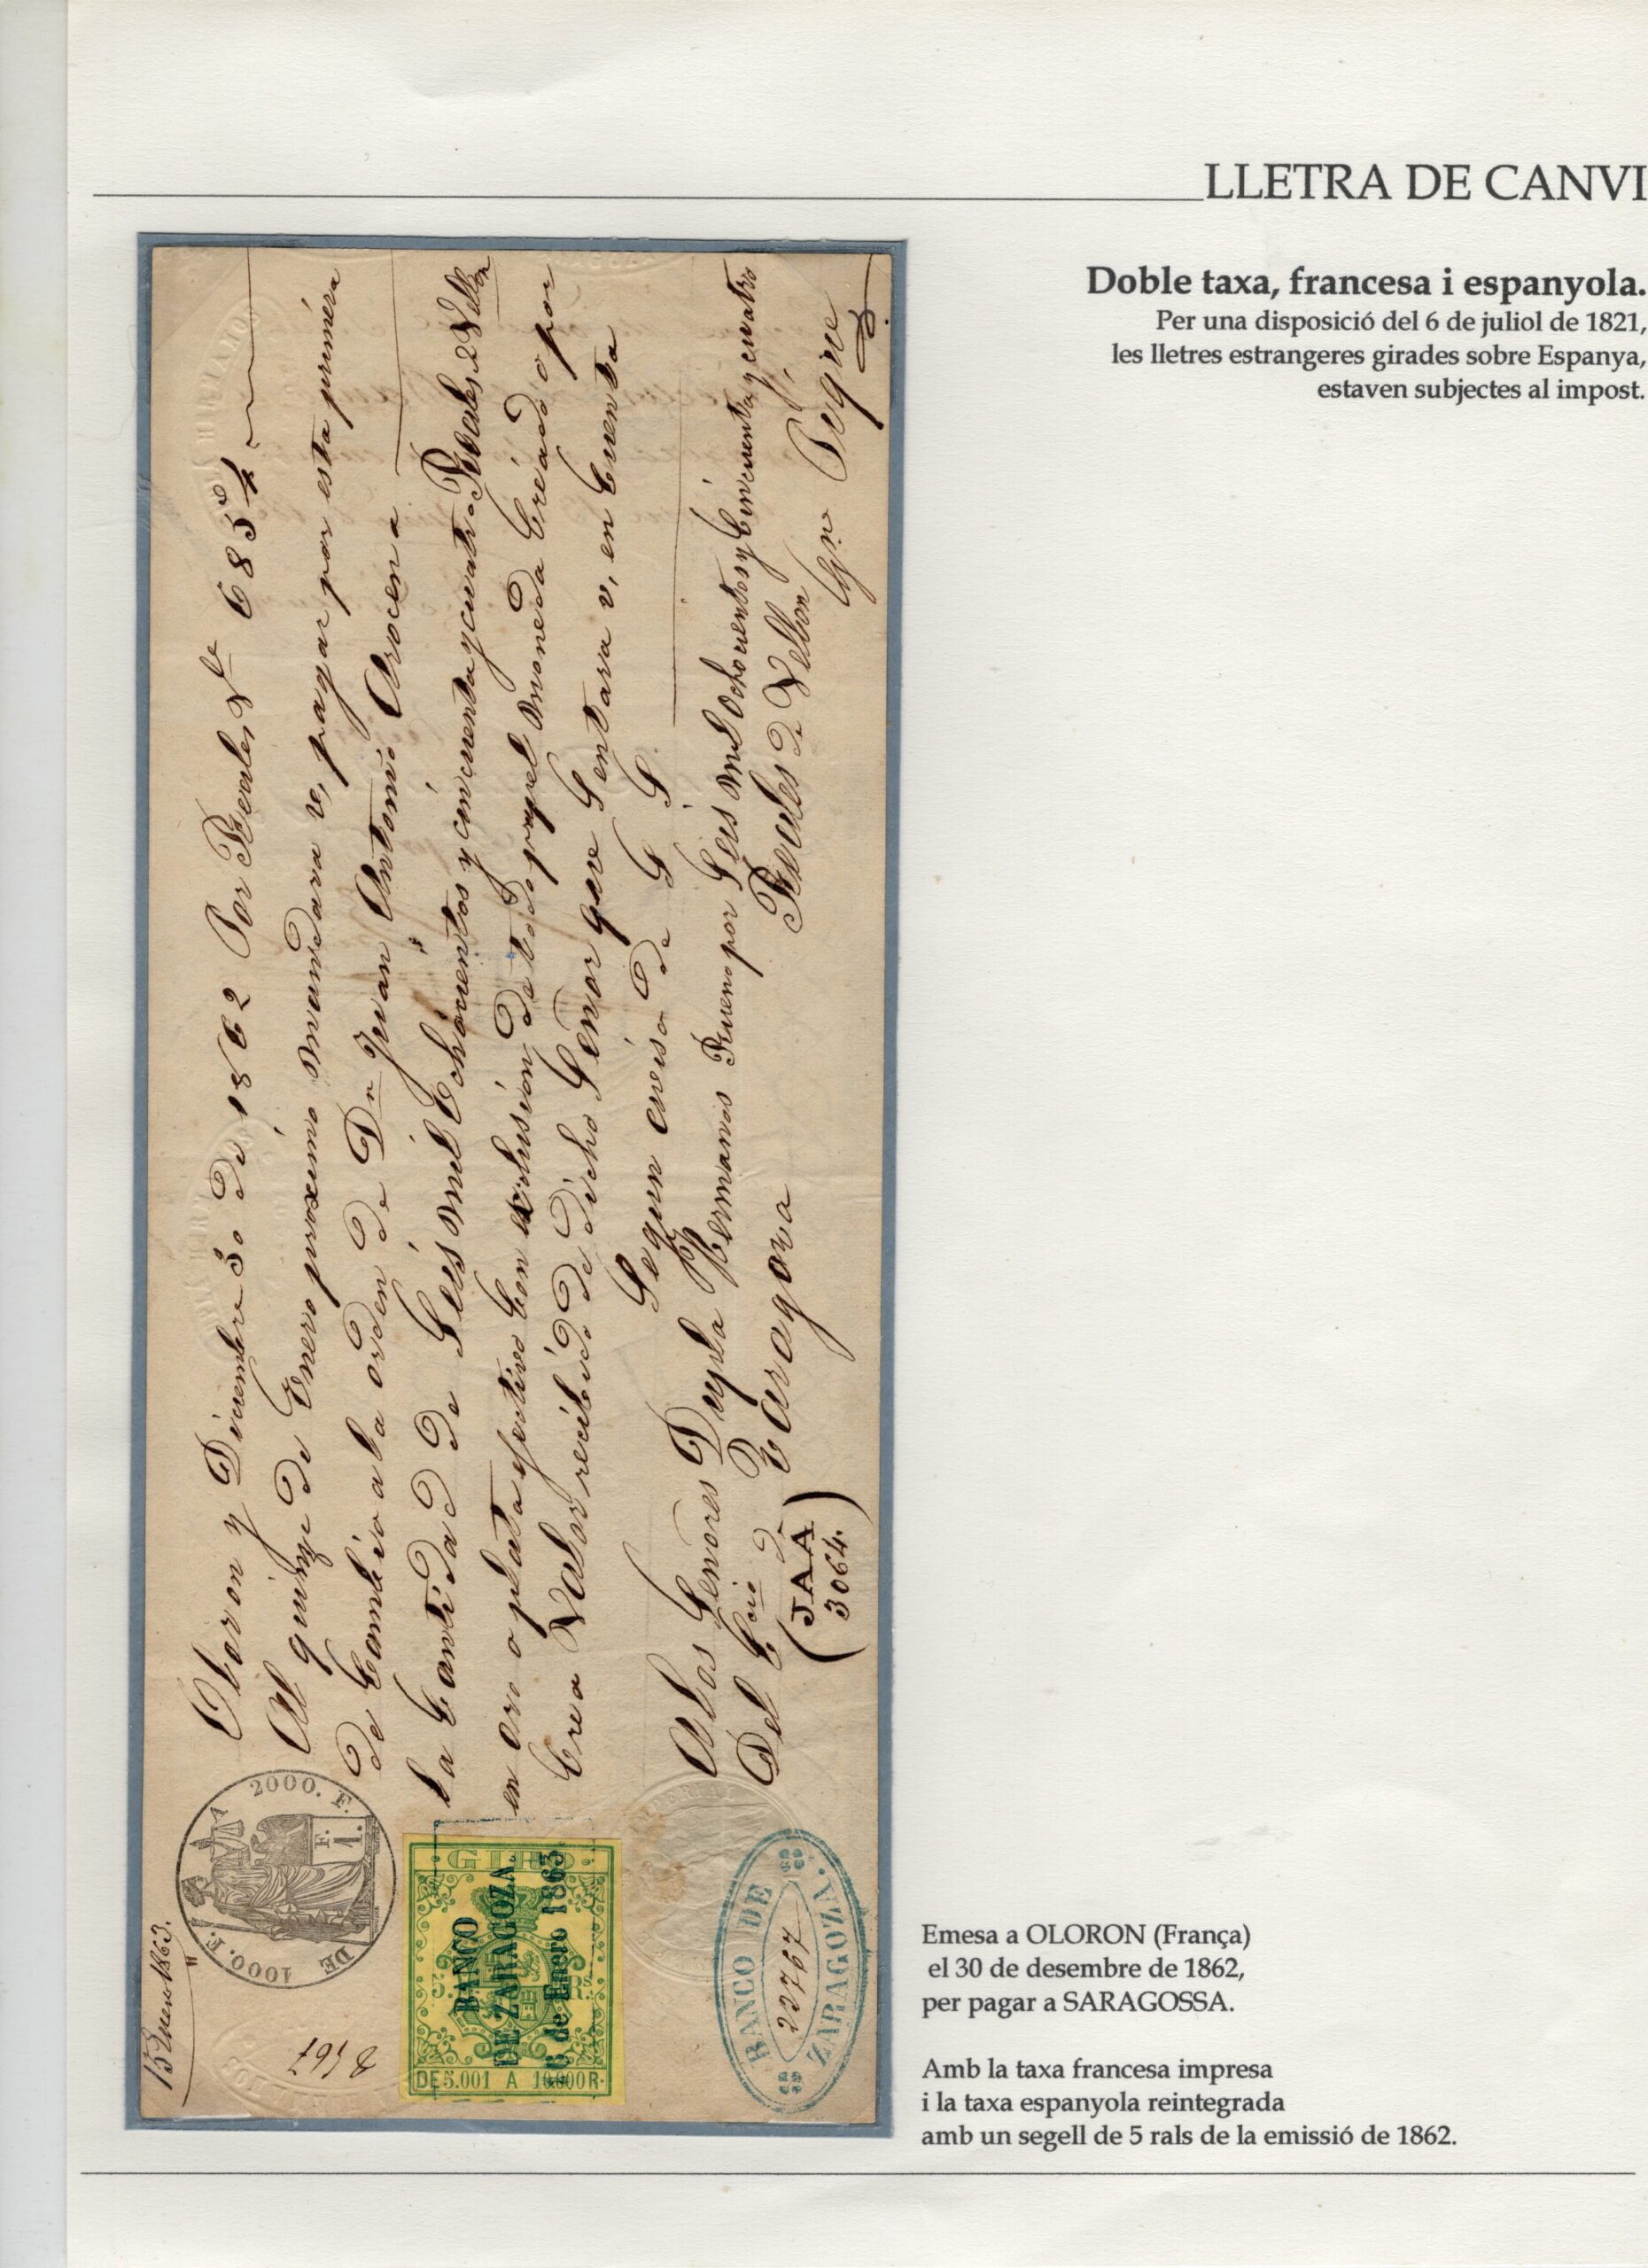 LLETRA DE CANVI
Doble taxa, francesa i espanyola.
Per una disposició del 6 de juliol de 1821,
les lletres estrangeres girades sobre Espanya,
estaven subjectes al impost.
15 Enero 1863.
Oloron y Diciembre 30 de 1862 Por Reales Von 6854
Al quinze de Enero proximo mandara v, pagar por esta primera
de Cambio a la orden de Dn Juan Antonio Arocena
la Cantidad de Seis mil Ochocientos y cincuenta y cuatro Reales Vellon
en oro o plata efectivo con exclusion de todo papel moneda Creado o por
Crea Valor recibido de dicho Señor que Sentara v, en Cuenta
Segun aviso de S S
A los Señores Dupla Hermanos Bueno por Seis mil ochocientos y Cincuenta y cuatro
Del Ccio de Zaragoza Reales de Vellon
(JAA
3064.)
1000. F. A 2000. F.
DE
F.
8567
GIRO
5 Rs
DE 5.001 A 10.000 R.
BANCO
DE ZARAGOZA.
de Enero 1863
BANCO DE
22767
ZARAGOZA.
Emesa a OLORON (França)
el 30 de desembre de 1862,
per pagar a SARAGOSSA.
Amb la taxa francesa impresa
i la taxa espanyola reintegrada
amb un segell de 5 rals de la emissió de 1862.